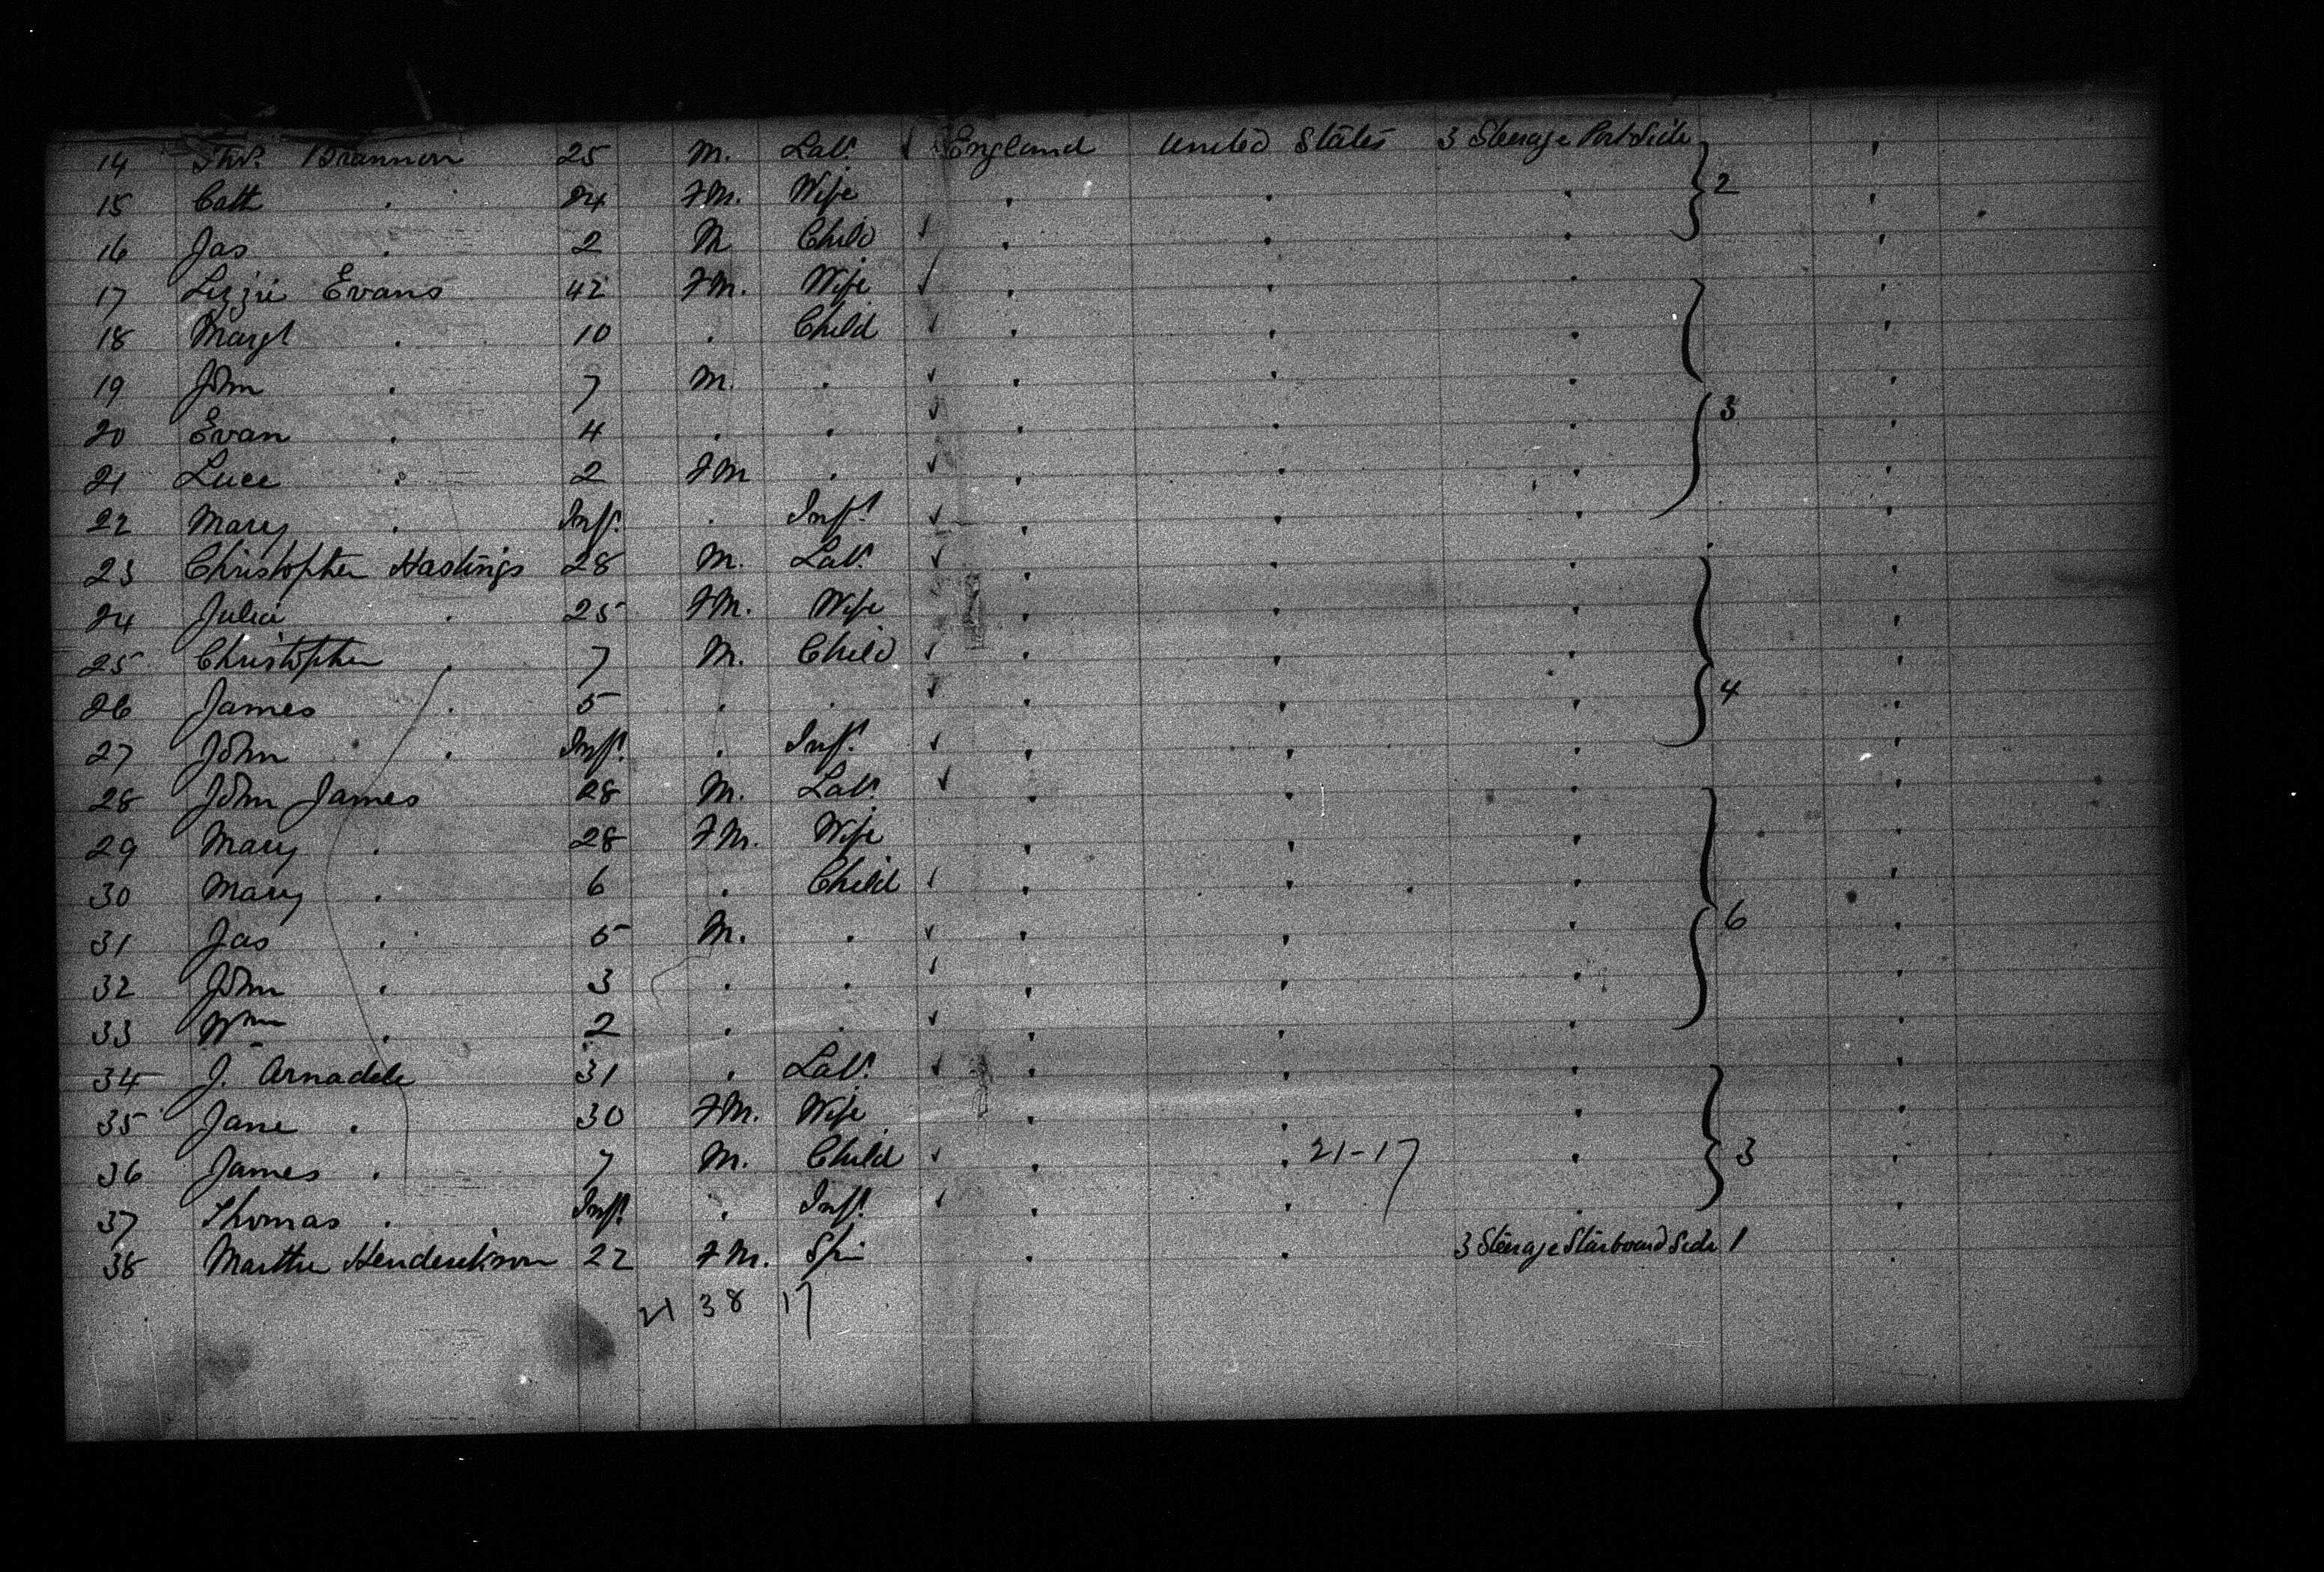 14 Thos. Brannon 25 M. Lab. ✓ England United States 3 Steerage Port Side
15 Cath . 24 FM. Wife . . . 2 .
16 Jas . 2 M Child ✓ . . . .
17 Lizzie Evans 42 FM. Wife ✓ . . . .
18 Margt . 10 . Child ✓ . . . .
19 John . 7 M. . ✓ . . . .
20 Evan . 4 . . ✓ . . . 3 .
21 Luce . 2 FM . ✓ . . . .
22 Mary . Inft. . Inft. ✓ . . . .
23 Christopher Hastings 28 M. Lab. ✓ . . . .
24 Julia . 25 FM. Wife . . . .
25 Christopher . 7 M. Child ✓ . . . .
26 James . 5 . . ✓ . . . 4 .
27 John . Inft. . Inft. ✓ . . . .
28 John James 28 M. Lab. ✓ . . . .
29 Mary . 28 FM. Wife . . . .
30 Mary . 6 . Child ✓ . . . .
31 Jas . 5 M. . ✓ . . . 6 .
32 John . 3 . . ✓ . . . .
33 Wm . 2 . . ✓ . . . .
34 J. Arnadele 31 . Lab. ✓ . . . .
35 Jane . 30 FM. Wife . . . .
36 James . 7 M. Child ✓ . . 21-17 . 3 .
37 Thomas . Inft. . Inft. ✓ . . . .
38 Martha Henderikson 22 FM. Spin . . 3 Steerage Starboard Side 1 .
21 38 17